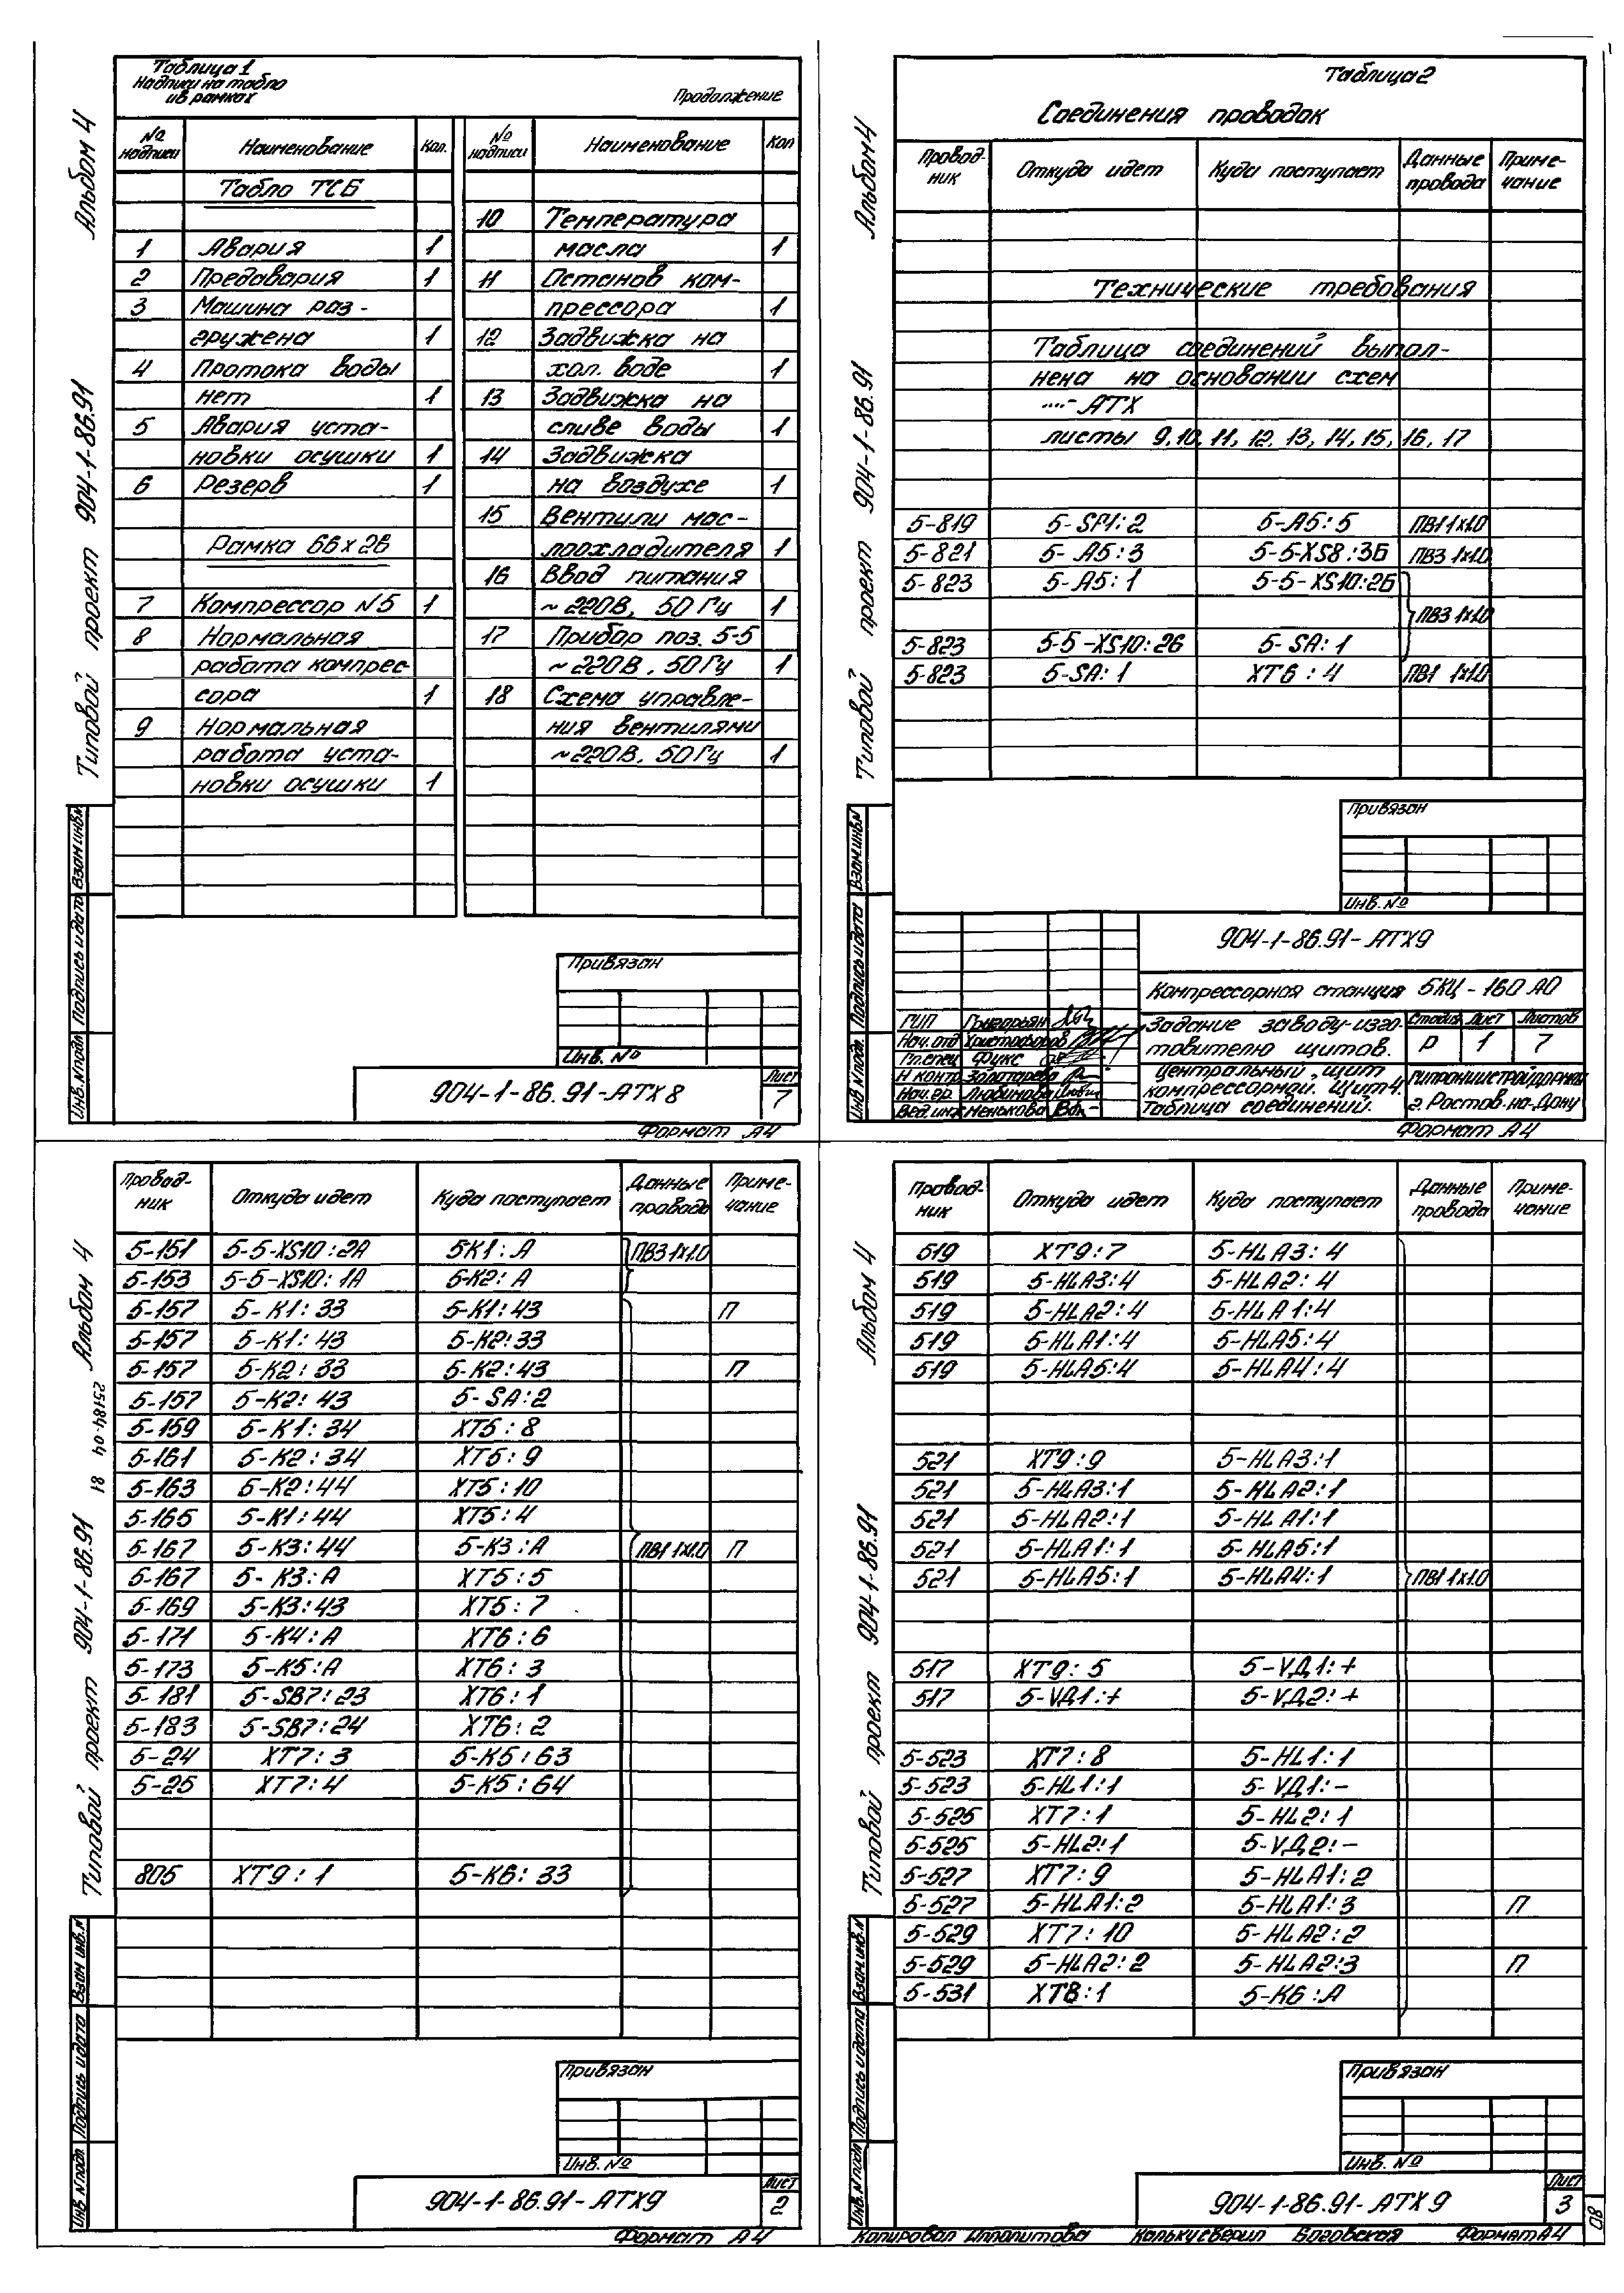 Таблица 1
Надписи на табло
и в рамках
Продолжение
№ надписи Наименование Кол. № надписи Наименование Кол
Табло ТСБ
1 Авария 1
2 Предавария 1
3 Машина раз-
гружена 1
4 Протока воды
нет 1
5 Авария уста-
новки осушки 1
6 Резерв 1
Рамка 66х26
7 Компрессор N5 1
8 Нормальная
работа компрес-
сора 1
9 Нормальная
работа уста-
новки осушки 1
10 Температура
масла 1
11 Останов ком-
прессора 1
12 Задвижка на
хол. воде 1
13 Задвижка на
сливе воды 1
14 Задвижка
на воздухе 1
15 Вентили мас-
лоохладителя 1
16 Ввод питания
~220В, 50Гц 1
17 Прибор поз. 5-5
~220В, 50Гц 1
18 Схема управле-
ния вентилями
~220В, 50Гц 1
Альбом 4
Типовой проект 904-1-86.91
Взам.инв.N
Подпись и дата
Инв. N подл
Привязан
Инв. №
904-1-86.91-АТХ8
Лист
7
Формат А4
Таблица 2
Соединения проводок
Провод-
ник Откуда идет Куда поступает Данные
провода Приме-
чание
Технические требования
Таблица соединений выпол-
нена на основании схем
....-АТХ
листы 9, 10, 11, 12, 13, 14, 15, 16, 17
5-819 5-SP1:2 5-А5:5 ПВ1 1х1.0
5-821 5-А5:3 5-5-XS8:3Б ПВ3 1х1.0
5-823 5-А5:1 5-5-XS10:2Б
ПВ3 1х1.0
5-823 5-5-XS10:2б 5-SA:1
5-823 5-SA:1 XT6:4 ПВ1 1х1.0
Альбом 4
Типовой проект 904-1-86.91
Взам.инв.N
Подпись и дата
Инв. N подл.
Привязан
Инв. №
904-1-86.91-АТХ9
Компрессорная станция 5КЦ-160 АО
ГИП Григорьян
Нач. отд Христофоров
Гл. спец Фукс
Н контр Золотарева
Нач. гр. Любимова
Вед. инж Ненькова
Задание заводу-изго-
товителю щитов.
Центральный щит
компрессорной. Щит 4.
Таблица соединений.
Стадия Лист Листов
Р 1 7
Гипронистройдормаш
г. Ростов-на-Дону
Формат А4
Провод-
ник Откуда идет Куда поступает Данные
провода Приме-
чание
5-151 5-5-XS10:2А 5К1:А ПВ3 1х1.0
5-153 5-5-XS10:1А 5-К2:А
5-157 5-К1:33 5-К1:43 П
5-157 5-К1:43 5-К2:33
5-157 5-К2:33 5-К2:43 П
5-157 5-К2:43 5-SA:2
5-159 5-К1:34 XT5:8
5-161 5-К2:34 XT5:9
5-163 5-К2:44 XT5:10
5-165 5-К1:44 XT5:4
5-167 5-К3:44 5-К3:А ПВ1 1х1.0 П
5-167 5-К3:А XT5:5
5-169 5-К3:43 XT5:7
5-171 5-К4:А XT6:6
5-173 5-К5:А XT6:3
5-181 5-SB7:23 XT6:1
5-183 5-SB7:24 XT6:2
5-24 XT7:3 5-К5:63
5-25 XT7:4 5-К5:64
805 XT9:1 5-К6:33
Альбом 4
25184-04 81
Типовой проект 904-1-86.91
Взам инв.N
Подпись и дата
Инв. N подл
Привязан
Инв. №
904-1-86.91-АТХ9
Лист
2
Формат А4
Провод-
ник Откуда идет Куда поступает Данные
провода Приме-
чание
519 XT9:7 5-HLA3:4
519 5-HLA3:4 5-HLA2:4
519 5-HLA2:4 5-HLA1:4
519 5-HLA1:4 5-HLA5:4
519 5-HLA5:4 5-HLA4:4
521 XT9:9 5-HLA3:1
521 5-HLA3:1 5-HLA2:1
521 5-HLA2:1 5-HLA1:1
521 5-HLA1:1 5-HLA5:1
521 5-HLA5:1 5-HLA4:1 ПВ1 1х1.0
517 XT9:5 5-VД1:+
517 5-VД1:+ 5-VД2:+
5-523 XT7:8 5-HL1:1
5-523 5-HL1:1 5-VД1:-
5-525 XT7:1 5-HL2:1
5-525 5-HL2:1 5-VД2:-
5-527 XT7:9 5-HLA1:2
5-527 5-HLA1:2 5-HLA1:3 П
5-529 XT7:10 5-HLA2:2
5-529 5-HLA2:2 5-HLA2:3 П
5-531 XT8:1 5-К6:А
Альбом 4
Типовой проект 904-1-86.91
Взам инв.N
Подпись и дата
Инв. N подл
Привязан
Инв. №
904-1-86.91-АТХ9
Лист
3
80
Копировал Ипполитова Кальку сверил Боговская Формат А4